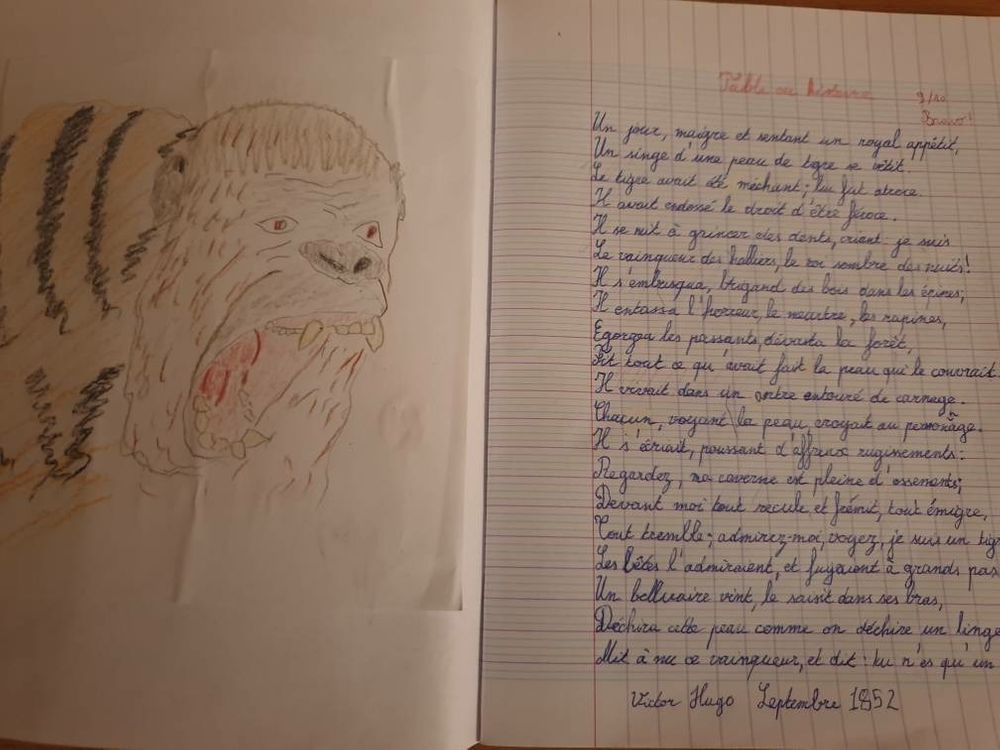 Fable ou histoire
9/10
Bravo!
Un jour, maigre et sentant un royal appétit,
Un singe d'une peau de tigre se vêtit.
Le tigre avait été méchant; lui fut atroce.
Il avait endossé le droit d'être féroce.
Il se mit à grincer des dents, criant: je suis
Le vainqueur des halliers, le roi sombre des nuits!
Il s'embusqua, brigand des bois dans les épines;
Il entassa l'horreur, le meurtre, les rapines,
Egorgea les passants, dévasta la forêt,
Fit tout ce qu'avait fait la peau qui le couvrait.
Il vivait dans un antre entouré de carnage.
Chacun, voyant la peau, croyait au personnage.
Il s'écriait, poussant d'affreux rugissements:
Regardez, ma caverne est pleine d'ossements;
Devant moi tout recule et frémit, tout émigre,
Tout tremble; admirez-moi, voyez, je suis un tig
Les bêtes l'admiraient, et fuyaient à grands pas
Un belluaire vint, le saisit dans ses bras,
Déchira cette peau comme on déchire un linge
Mit à nu ce vainqueur, et dit: tu n'es qu'un
Victor Hugo Septembre 1852